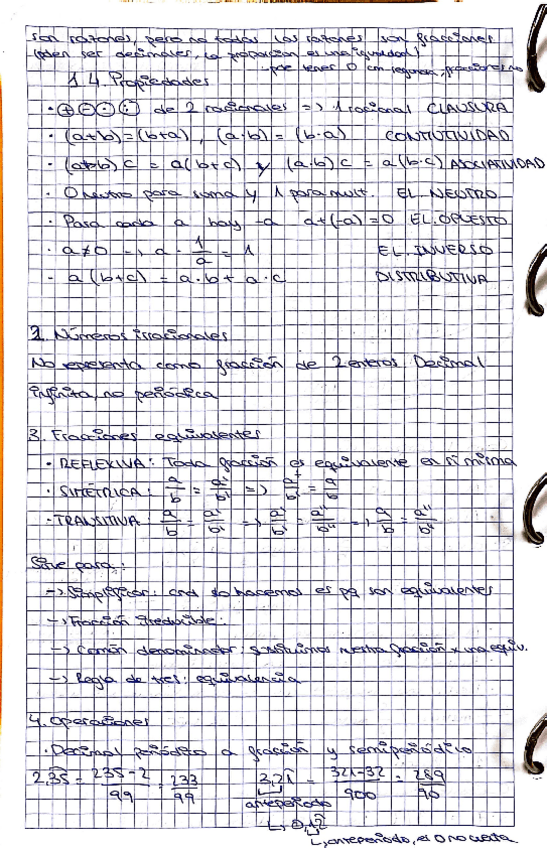 son razones, pero no todas las razones son fracciones
(pden ser decimales, la proporción es una igualdad)
-pde tener 0 cm segundo, fracciones no
1.4. Propiedades
· ⊕ ⊖ ⊙ ⨸ de 2 racionales => 1 racional CLAUSURA
· (a+b)=(b+a), (a·b) = (b·a) CONMUTIVIDAD
· (a+b) c = a(b+c) y (a·b)c = a(b·c) ASOCIATIVIDAD
· 0 neutro para suma y 1 para mult. EL. NEUTRO
· Para cada a hay -a a+(-a)=0 EL. OPUESTO
· a≠0 -> a · 1/a = 1 EL. INVERSO
- a(b+c) = a·b + a·c DISTRIBUTIVA
2. Números irracionales
No representa como fracción de 2 enteros. Decimal
infinita, no periódica
3. Fracciones equivalentes
· REFLEXIVA: Toda fracción es equivalente en sí misma
· SIMÉTRICA: a/b = a'/b' => a'/b' = a/b
· TRANSITIVA: a/b = a'/b' => a'/b' = a''/b'' => a/b = a''/b''
Sirve para:
-> Simplificar: cnd lo hacemos es pq son equivalentes
-> Fracción irreducible.
-> Común denominador: sustituimos nuestra fracción x una equiv.
-> Regla de tres: equivalencia
4. Operaciones
· Decimal periódico a fracción y semiperiódico
2,35 = 235-2/99 = 233/99 3,21 = 321-32/900 = 289/90
anteperiodo
↳ 0,12
↳ anteperiodo, el 0 no cuenta